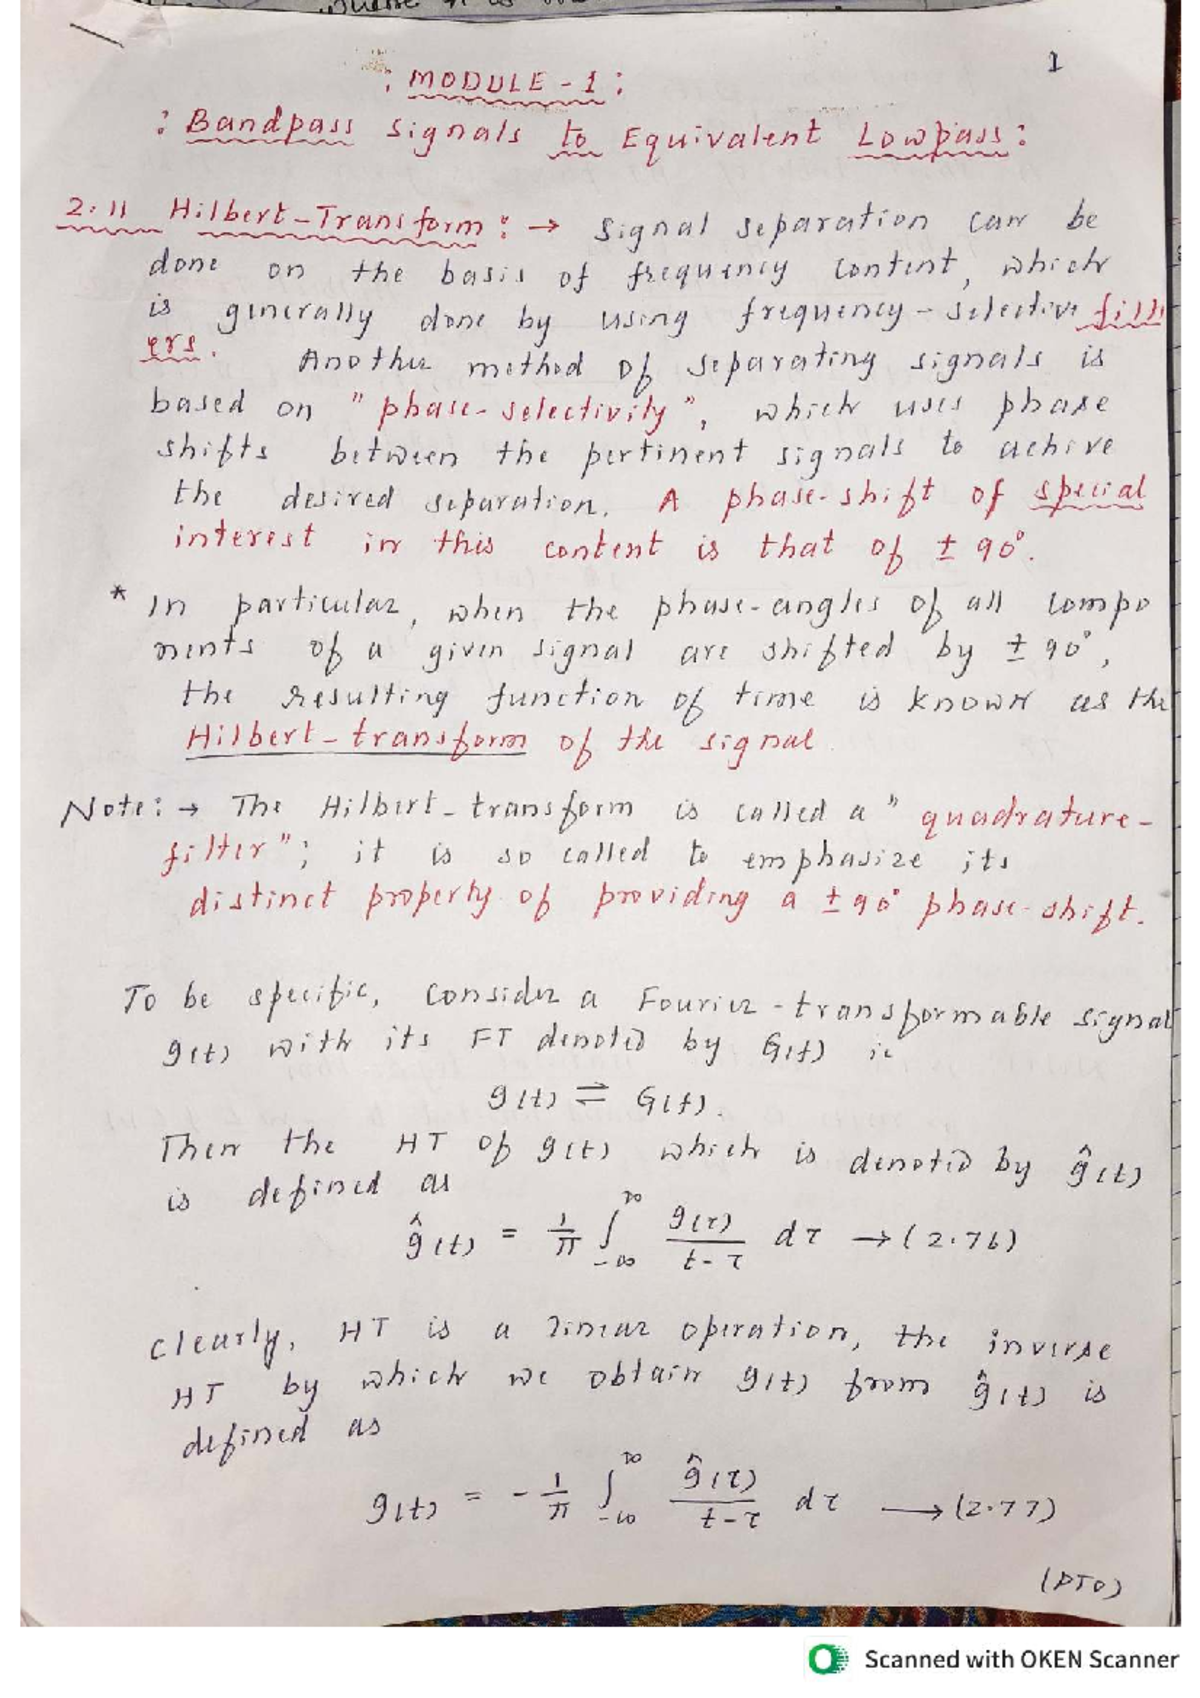 1
: MODULE - 1 :
: Bandpass signals to Equivalent Lowpass :
2.11 Hilbert-Transform : → Signal separation can be
done on the basis of frequency content, which
is generally done by using frequency-selective filt
ers. Another method of separating signals is
based on "phase-selectivity", which uses phase
shifts between the pertinent signals to achive
the desired separation. A phase-shift of special
interest in this content is that of ± 90°.
* In particular, when the phase-angles of all compo
nents of a given signal are shifted by ± 90°,
the resulting function of time is known as the
Hilbert-transform of the signal.
Note: → The Hilbert-transform is called a "quadrature-
filter"; it is so called to emphasize its
distinct property of providing a ± 90° phase-shift.
To be specific, consider a Fourier-transformable signal
g(t) with its FT denoted by G(f) ie
g(t) ⇌ G(f).
Then the HT of g(t) which is denoted by ĝ(t)
is defined as
ĝ(t) = 1/π ∫_{-∞}^{∞} g(τ)/(t-τ) dτ → (2.76)
Clearly, HT is a linear operation, the inverse
HT by which we obtain g(t) from ĝ(t) is
defined as
g(t) = -1/π ∫_{-∞}^{∞} ĝ(τ)/(t-τ) dτ → (2.77)
(PTO)
Scanned with OKEN Scanner